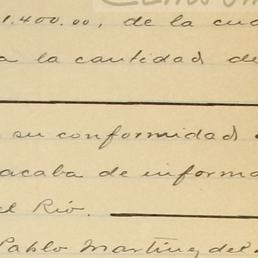 1.400.00, de la cua
a la cantidad de
su conformidad
acaba de informa
el Río.
Pablo Martínez del